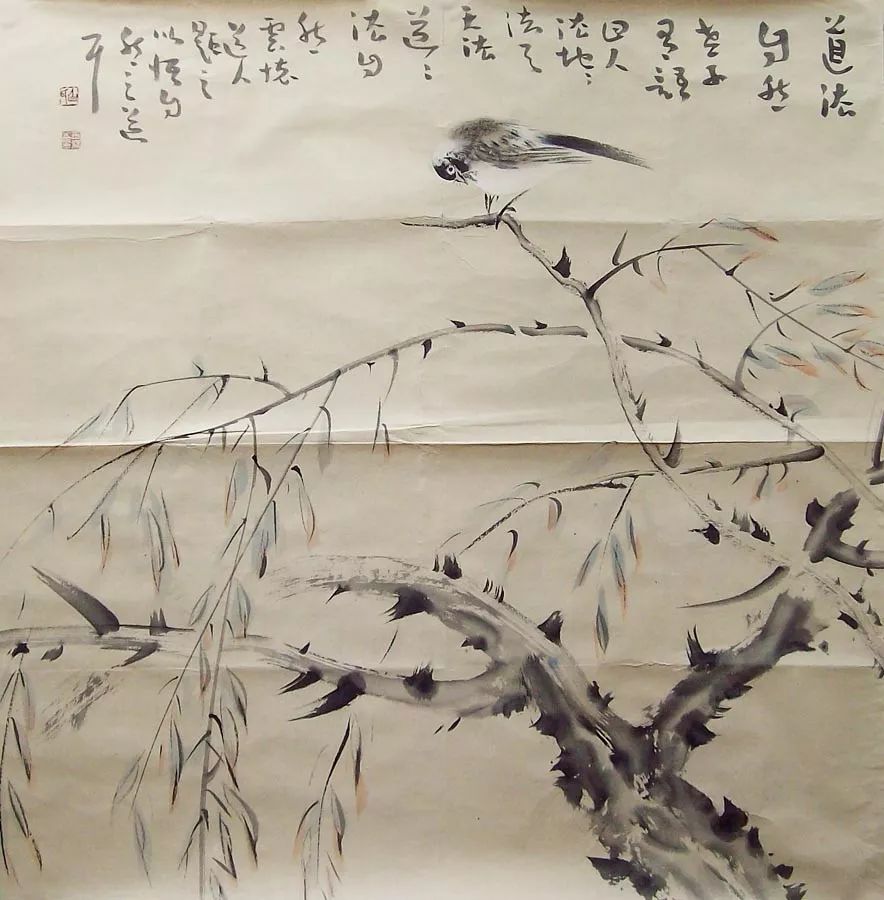 道法
自然
老子
有語
曰人
法地〻
法天
天法
道〻
法自
然
雲懷
道人
題之
以悟自
然之道
耳